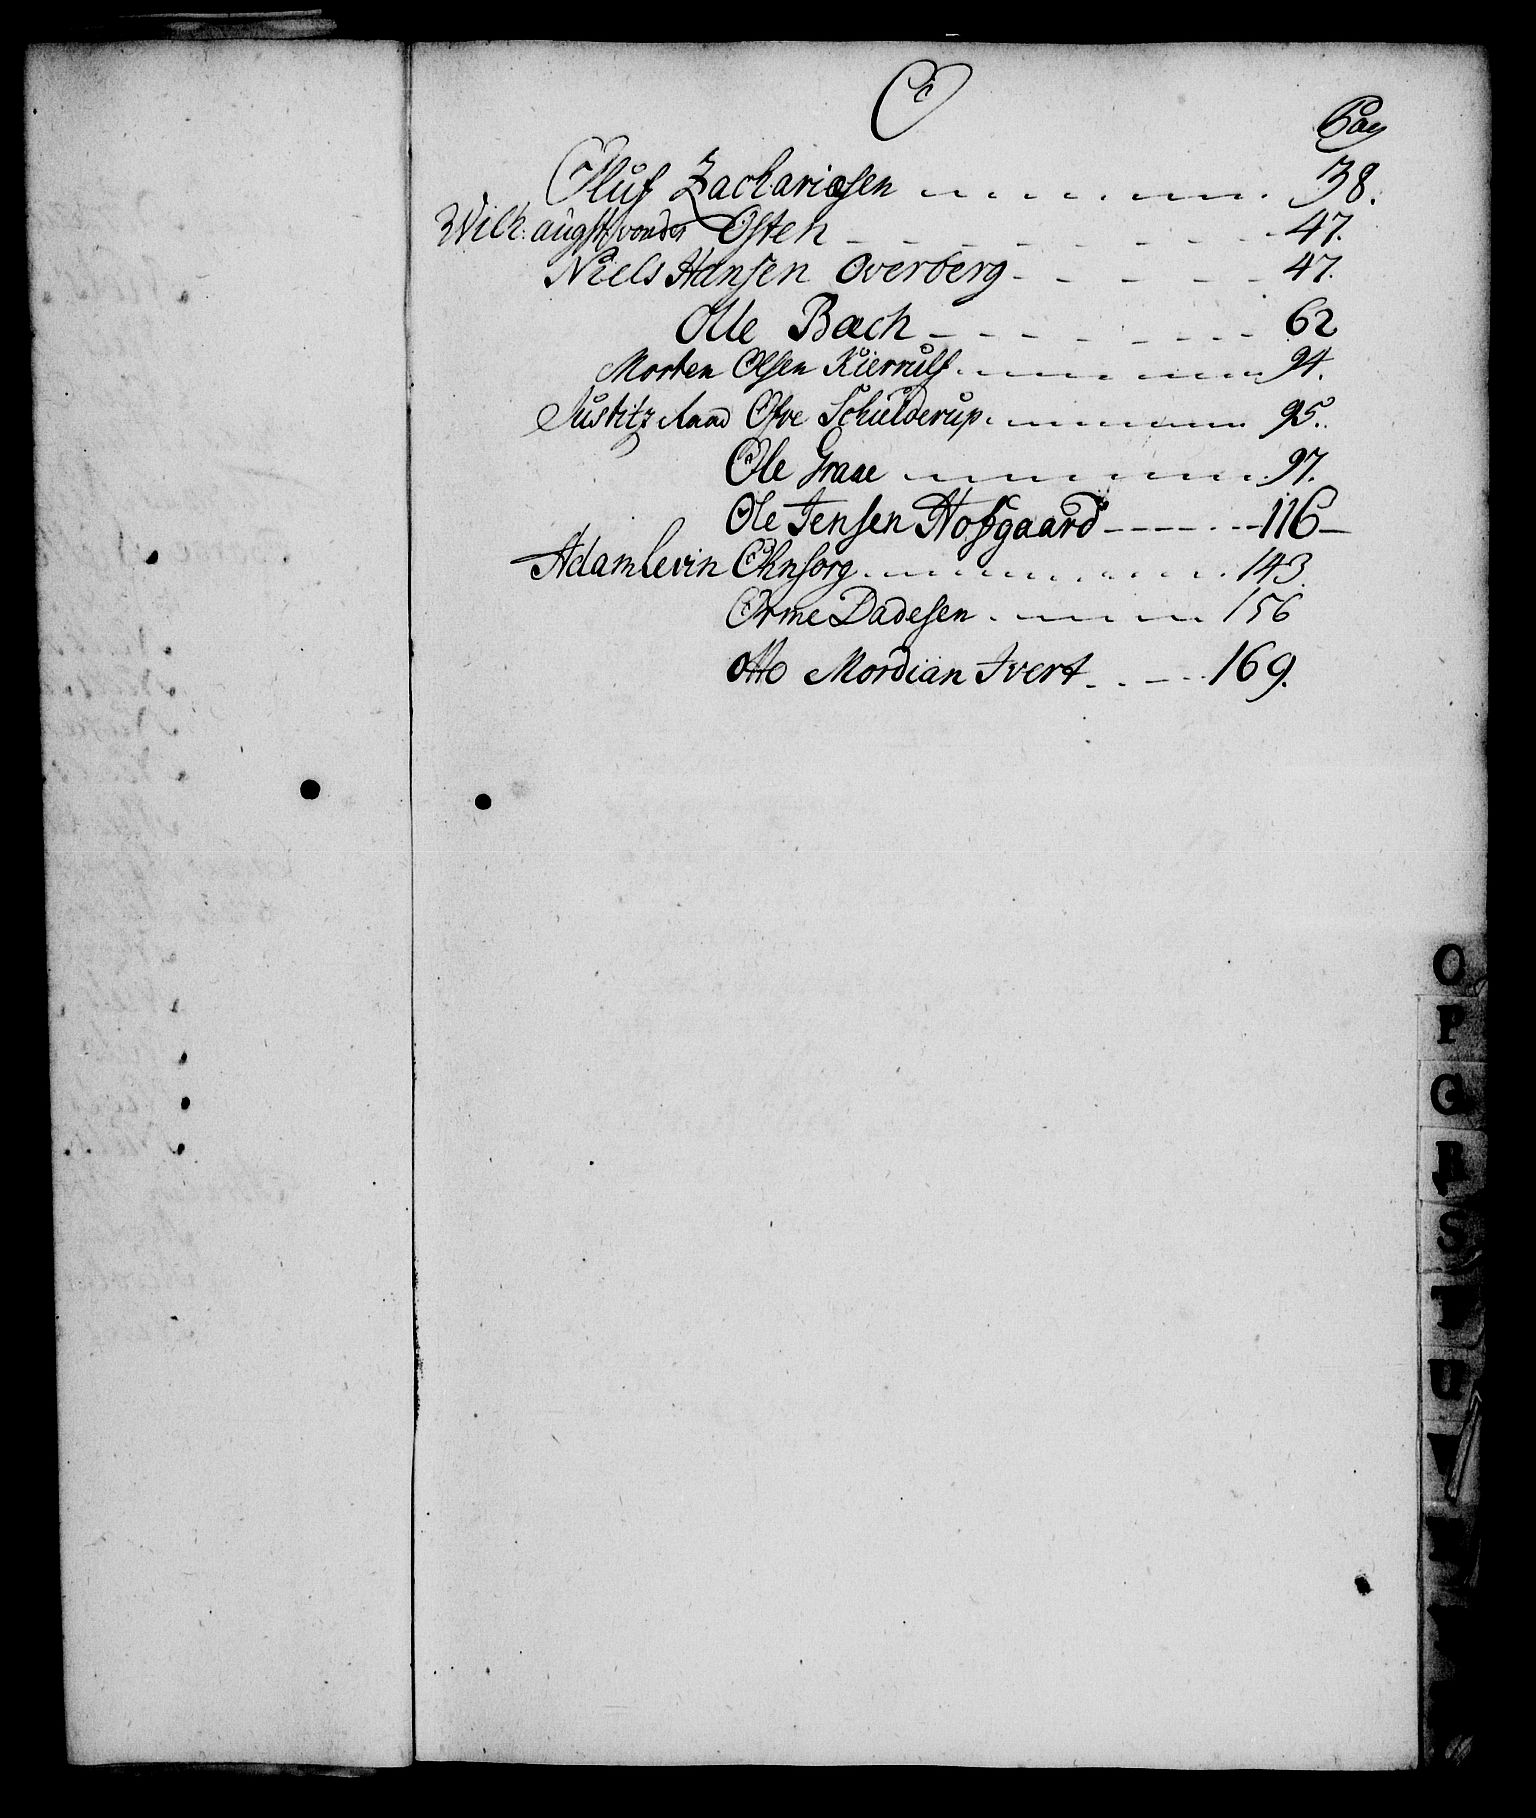 O
Pag
Oluf Zachariæsen 38.
Wilh: augst: vonder Osten 47.
Niels Hansen Overberg 47.
Olle Bach 62
Morten Olsen Kierrulf 94.
Justitz Raad Ofve Schielderup 95.
Ole Graae 97.
Ole Jensen Hofgaard 116
Adam Levin Ohnsorg 143.
Orme Dadesen 156
Otto Mordian Ivert 169.
O
P
Q
R
S
T
U
V